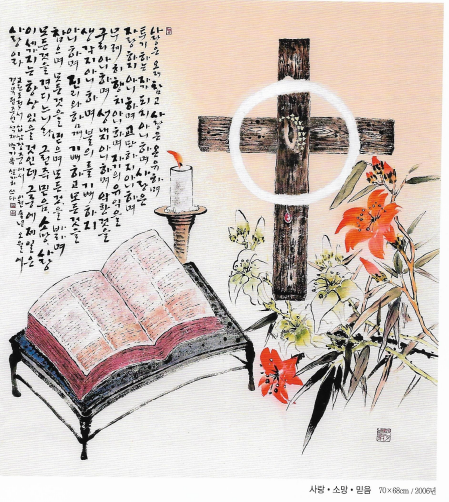 사랑은 오래 참고 사랑은 온유하며
투기하는 자가 되지 아니하며 사랑은
자랑하지 아니하며 교만하지 아니하며
무례히 행치 아니하며 자기의 유익을
구치 아니하며 성내지 아니하며 악한 것을
생각지 아니하며 불의를 기뻐하지
아니하며 진리와 함께 기뻐하고 모든 것을
참으며 모든 것을 믿으며 모든 것을 바라며
모든 것을 견디느니라 그런즉 믿음 소망 사랑
이 세가지는 항상 있을 것인데 그 중에 제일은
사랑이라
사랑 • 소망 • 믿음 70×68cm / 2006년